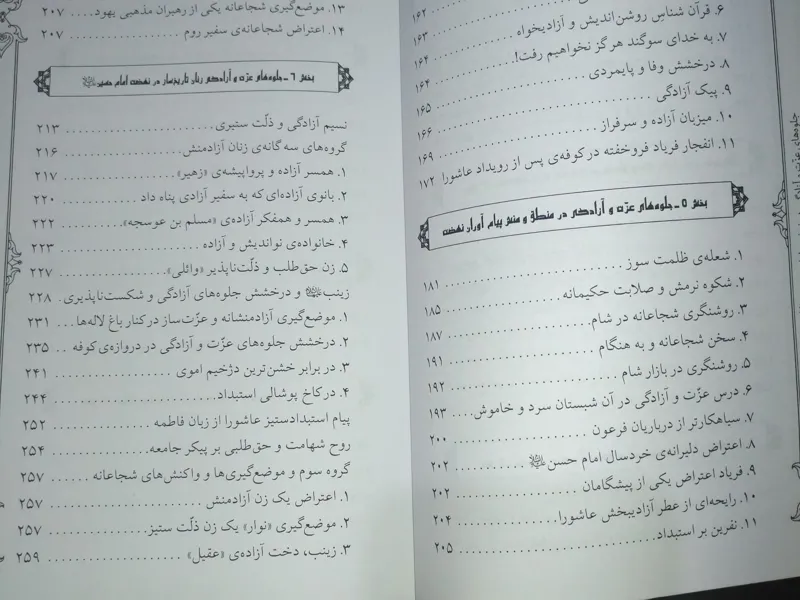 ۶. قرآن شناسِ روشن‌اندیش و آزادیخواه ۱۶۲
۷. به خدای سوگند هرگز نخواهیم رفت! ۱۶۳
۸. درخشش وفا و پایمردی ۱۶۴
۹. پیک آزادگی ۱۶۴
۱۰. میزبان آزاده و سرفراز ۱۶۵
۱۱. انفجار فریاد فروخفته در کوفه‌ی پس از رویداد عاشورا ۱۶۶
۱۶۹
۱۷۲
بخش ۵ ـ جلوه‌های عزت و آزادگی در منطق و منش پیام آوران نهضت
۱. شعله‌ی ظلمت سوز ۱۸۱
۲. شکوه نرمش و صلابت حکیمانه ۱۸۵
۳. روشنگری شجاعانه در شام ۱۸۷
۴. سخن شجاعانه و به هنگام ۱۹۱
۵. روشنگری در بازار شام ۱۹۲
۶. درس عزّت و آزادگی در آن شبستان سرد و خاموش ۱۹۳
۷. سیاهکارتر از درباریان فرعون ۲۰۰
۸. اعتراض دلیرانه‌ی خردسال امام حسن ۲۰۲
۹. فریاد اعتراض یکی از پیشگامان ۲۰۲
۱۰. رایحه‌ای از عطر آزادیبخش عاشورا ۲۰۴
۱۱. نفرین بر استبداد ۲۰۵
۱۳. موضع‌گیری شجاعانه یکی از رهبران مذهبی یهود ۲۰۷
۱۴. اعتراض شجاعانه‌ی سفیر روم ۲۰۷
بخش ۶ ـ جلوه‌های عزت و آزادگی زنان تاریخ‌ساز در نهضت امام حسین
نسیم آزادگی و ذلّت ستیزی ۲۱۳
گروه‌های سه گانه‌ی زنان آزادمنش ۲۱۶
۱. همسر آزاده و پرواپیشه‌ی «زهیر» ۲۱۷
۲. بانوی آزاده‌ای که به سفیر آزادی پناه داد ۲۲۰
۳. همسر و همفکر آزاده‌ی «مسلم بن عوسجه» ۲۲۲
۴. خانواده‌ی نواندیش و آزاده ۲۲۳
۵. زن حق‌طلب و ذلّت‌ناپذیر «وائلی» ۲۲۷
زینب و درخشش جلوه‌های آزادگی و شکست‌ناپذیری ۲۲۸
۱. موضع‌گیری آزادمنشانه و عزّت‌ساز در کنار باغ لاله‌ها ۲۳۱
۲. درخشش جلوه‌های عزّت و آزادگی در دروازه‌ی کوفه ۲۳۵
۳. در برابر خشن‌ترین دژخیم اموی ۲۴۱
۴. در کاخ پوشالی استبداد ۲۴۴
پیام استبدادستیز عاشورا از زبان فاطمه ۲۵۲
روح شهامت و حق‌طلبی بر پیکر جامعه ۲۵۴
گروه سوم و موضع‌گیری‌ها و واکنش‌های شجاعانه ۲۵۷
۱. اعتراض یک زن آزادمنش ۲۵۷
۲. موضع‌گیری «نوار» یک زن ذلّت ستیز ۲۵۷
۳. زینب، دخت آزاده‌ی «عقیل» ۲۵۹